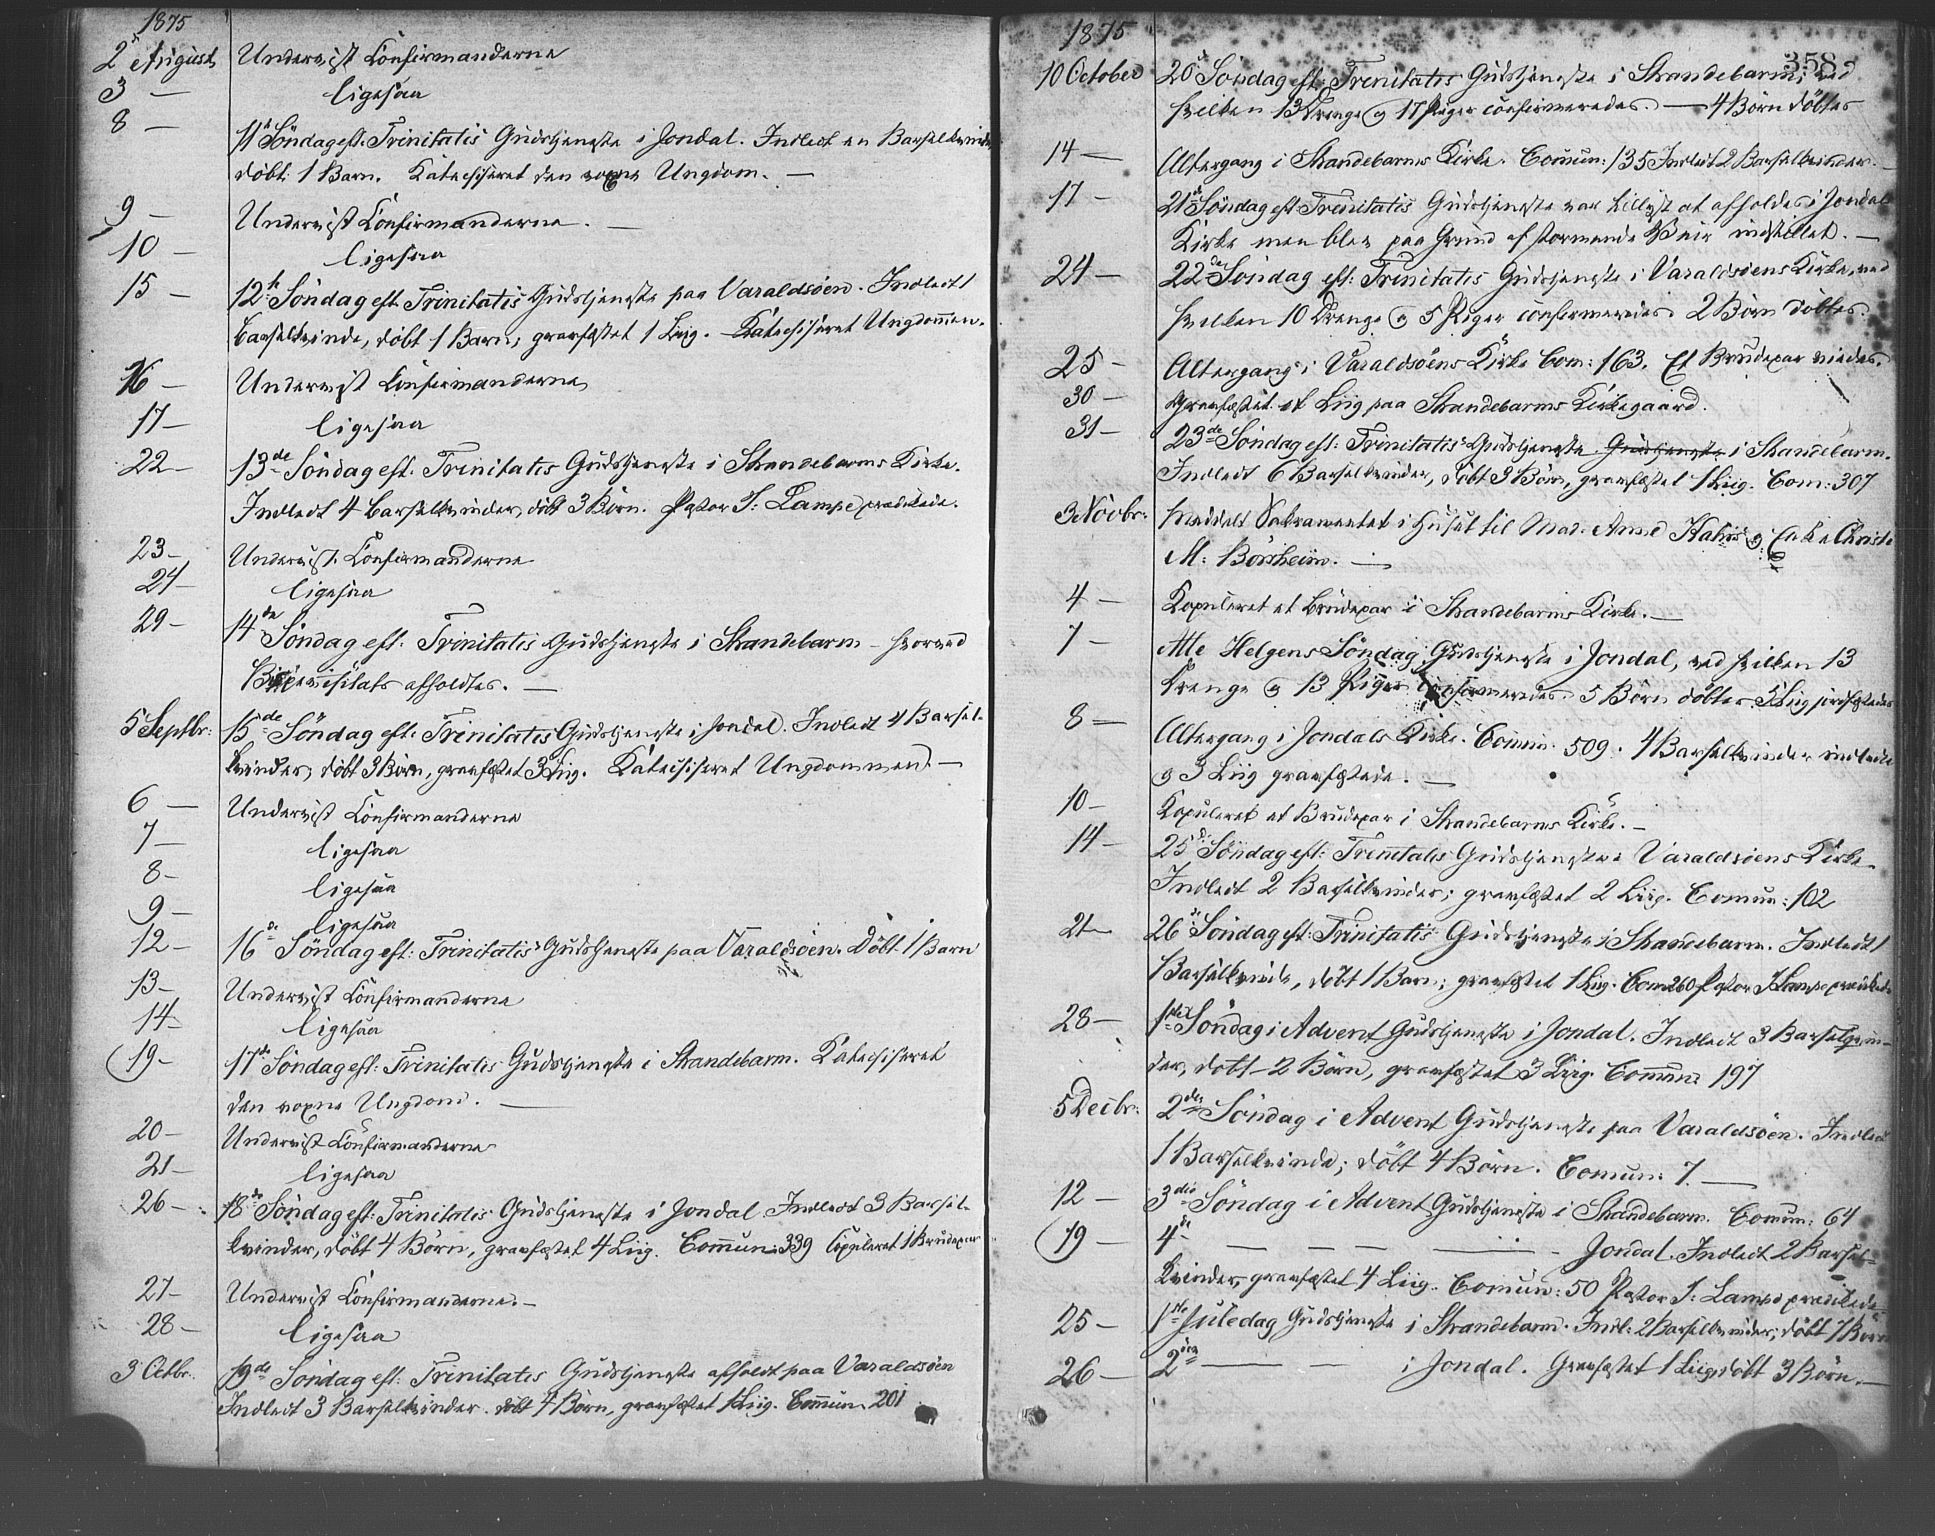 1875
2 August Underviist Confirmanderne
3 — ligesaa
8 — 11te Söndag eft. Trinitatis Gudstjeneste i Jondal. Indledt en Barselkvinde
döbt: 1 Barn. Katechiseret den voxne Ungdom. —
9 — Underviist Confirmanderne. —
10 — ligesaa
15 — 12te Söndag eft. Trinitatis Gudstjeneste paa Varaldsöen. Indledt 1
Barselkvinde, döbt 1 Barn, gravfæstet 1 Liig. Katechiseret Ungdommen.
16 — Underviist Confirmanderne
17 — ligesaa
22 — 13de Söndag eft. Trinitatis Gudstjeneste i Strandebarms Kirke.
Indledt 4 Barselkvinder, döbt 3 Börn. Pastor J: Lampe prædikede.
23 — Underviist Confirmanderne
24 — ligesaa
29 — 14de Söndag eft. Trinitatis Gudstjeneste i Strandebarm — hvorved
Bispevisitats afholdtes. —
5 Septbr: 15de Söndag eft. Trinitatis Gudstjeneste i Jondal. Indledt 4 Barsel-
kvinder, döbt 3 Börn, gravfæstet 3 Liig. Katechiseret Ungdommen. —
6 — Underviist Confirmanderne
7 — ligesaa
8 — ligesaa
9 — ligesaa
12 — 16de Söndag eft: Trinitatis Gudstjeneste paa Varaldsöen. Döbt 1 Barn
13 — Underviist Confirmanderne
14 — ligesaa
19 — 17de Söndag eft: Trinitatis Gudstjeneste i Strandebarm. Katechiseret
den voxne Ungdom. —
20 — Underviist Confirmanderne
21 — ligesaa
26 — 18de Söndag eft: Trinitatis Gudstjeneste i Jondal. Indledt 3 Barsel-
kvinder, döbt 4 Börn, gravfæstet 4 Liig. Commun: 339 Copuleret 1 Brudepar
27 — Underviist Confirmanderne. —
28 — ligesaa
3 Octbr. 19de Söndag eft: Trinitatis Gudstjeneste afholdt paa Varaldsöen
Indledt 3 Barselkvinder. döbt 4 Börn, gravfæstet 1 Liig. Commun. 201
1875
358
10 October 20de Söndag eft: Trinitatis Gudstjeneste i Strandebarm; ved
hvilken 13 Drenge og 17 Piger confirmeredes. — 4 Börn döbtes
14 — Altergang i Strandebarms Kirke. Comun: 135 Indledt 2 Barselkvinder. —
17 — 21de Söndag eft: Trinitatis Gudstjeneste var tillyst at afholdes i Jondals
Kirke men blev paa Grund af stormende Veir indstillet. —
24 — 22de Söndag eft: Trinitatis Gudstjeneste i Varaldsöens Kirke, ved
hvilken 10 Drenge og 5 Piger confirmeredes 2 Börn döbtes.
25 — Altergang i Varaldsöens Kirke Com: 163. Et Brudepar viedes.
30 — Gravfæstet et Liig paa Strandebarms Kirkegaard.
31 — 23de Söndag eft: Trinitatis Gudstjeneste Gudstjeneste i Strandebarm.
Indledt 6 Barselkvinder, döbt 3 Börn, gravfæstet 1 Liig. Com: 307
3 Novbr: Meddelt Sakramentet i Huset til Mad. Anne og Enke Christi
M: Börsheim. —
4 — Kopuleret et Brudepar i Strandebarms Kirke. —
7 — Alle Helgens Söndag Gudstjeneste i Jondal, ved hvilken 13
Drenge og 13 Piger confirmeredes 5 Börn döbtes. 5 Liig jordfæstedes
8 — Altergang i Jondals Kirke. Comun: 509. 4 Barselkvinder indledte
og 3 Liig gravfæstede. —
10 — Kopuleret et Brudepar i Strandebarms Kirke. —
14 — 25de Söndag eft: Trinitatis Gudstjeneste i Varaldsöens Kirke.
Indledt 2 Barselkvinder; gravfæstet 2 Liig. Comun: 102
21 — 26de Söndag eft: Trinitatis Gudstjeneste i Strandebarm. Indledt 1
Barselkvinde, döbt 1 Barn; gravfæstet 1 Liig. Com 260 Pastor J Lampe prædikede
28 — 1ste Söndag i Advent Gudstjeneste i Jondal. Indledt 3 Barselqvin-
der, döbt 2 Börn, gravfæstet 3 Liig. Commun: 197
5 Decbr: 2den Söndag i Advent Gudstjeneste paa Varaldsöen. Indledt
1 Barselkvinde; döbt 4 Börn. Comun: 7. —
12 — 3die Söndag i Advent Gudstjeneste i Strandebarm. Comun: 64
19 — 4de — — — — Jondal. Indledt 2 Barsel-
kvinder, gravfæstet 4 Liig. Comun: 50 Pastor J: Lampe prædikede
25 — 1ste Juledag Gudstjeneste i Strandebarm. Indl: 2 Barselkvinder, döbt 7 Börn
26 — 2den — — i Jondal. Gravfæstet 1 Liig, döbt 3 Börn. —